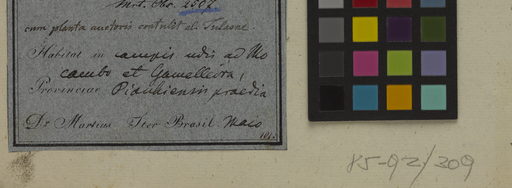 Mart. Obs. 2502
cum planta auctoris contulit ab. Tulasne
Habitat in campis udis ad Mo
cambo et Gamelleira,
Provinciae Piauhiensis praedia
Dr Martius Iter Brasil. Maio
181
K5-92/309